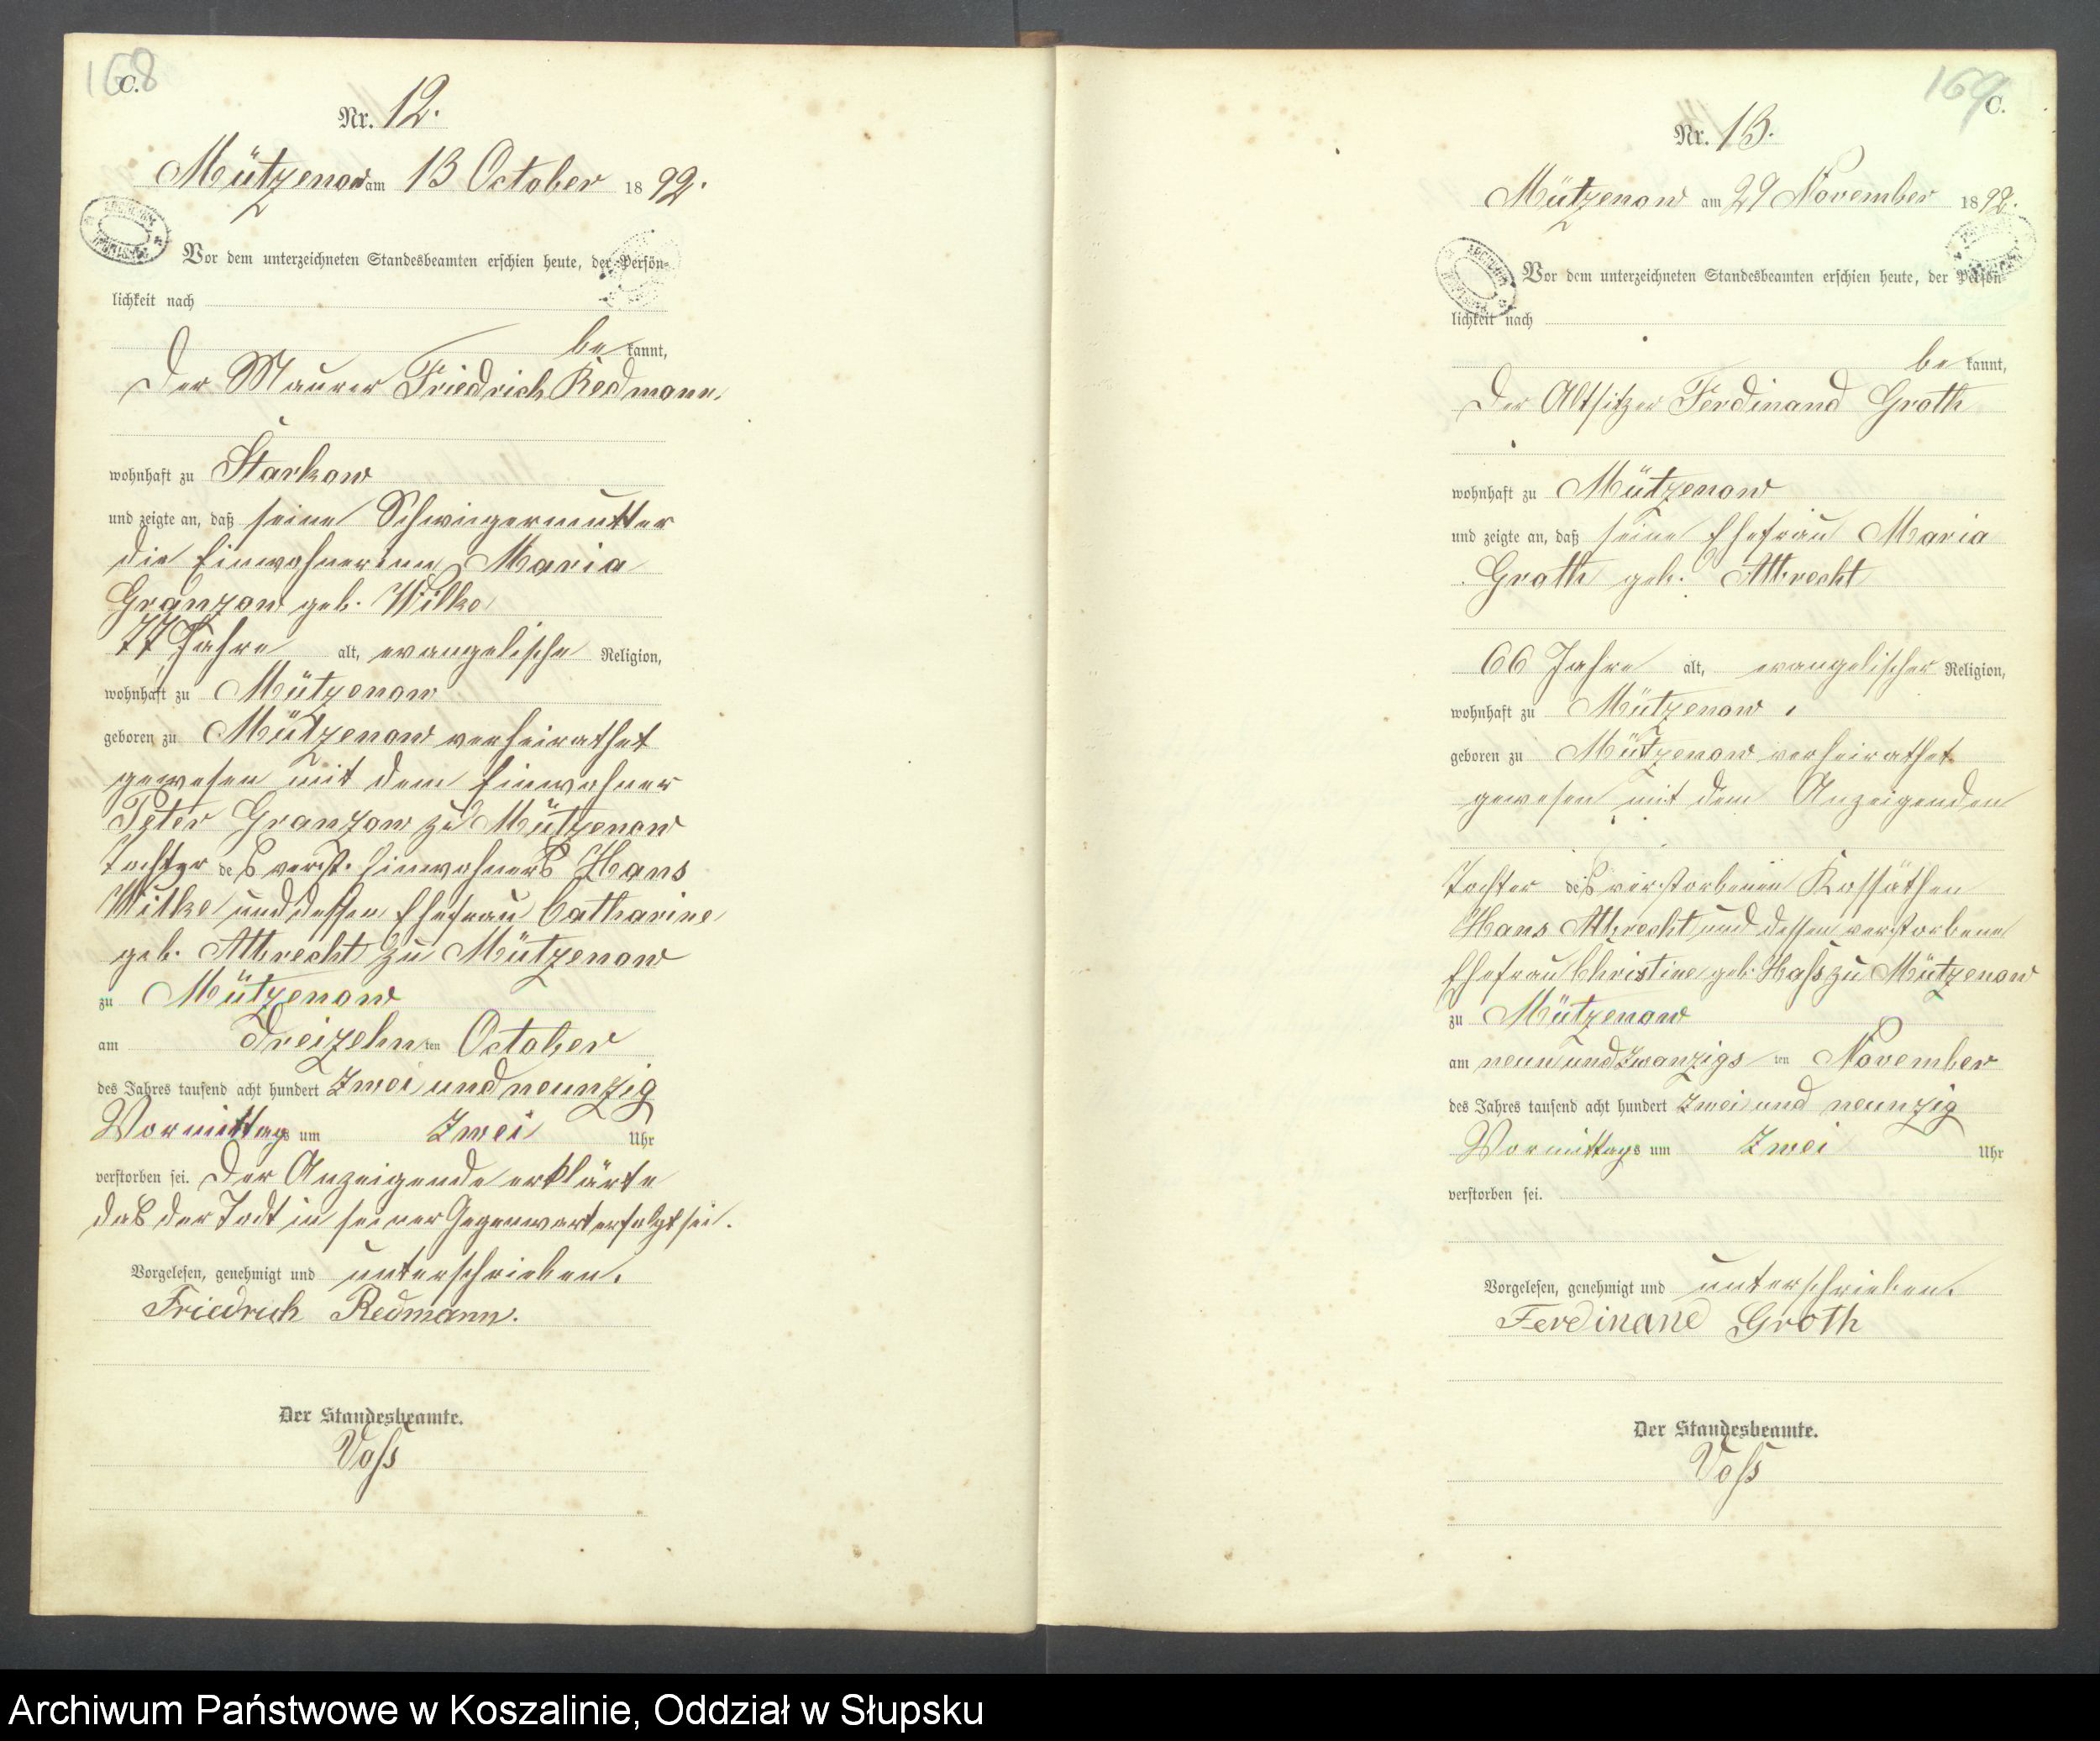 168
C.
Nr. 12.
Mützenow am 13 October 1892.
Vor dem unterzeichneten Standesbeamten erschien heute, der Persön-
lichkeit nach
be kannt,
Der Maurer Friedrich Redmann.
wohnhaft zu Starkow
und zeigte an, daß seine Schwiegermutter
die Einwohnerinn Maria
Granzow geb. Wilke
77 Jahre alt, evangelische Religion,
wohnhaft zu Mützenow
geboren zu Mützenow verheirathet
gewesen mit dem Einwohner
Peter Granzow zu Mützenow
Tochter des verst. Einwohners Hans
Wilke und dessen Ehefrau Catharine
geb. Albrecht zu Mützenow
zu Mützenow
am Dreizehn ten October
des Jahres tausend acht hundert zwei und neunzig
Vormittags um zwei Uhr
verstorben sei. Der Anzeigende erklärte
daß der Todt in seiner Gegenwart erfolgt sei.
Vorgelesen, genehmigt und unterschrieben.
Friedrich Redmann.
Der Standesbeamte.
Voss
169
C.
Nr. 13.
Mützenow am 29 November 1892.
Vor dem unterzeichneten Standesbeamten erschien heute, der Persön-
lichkeit nach
be kannt,
Der Altsitzer Ferdinand Groth
wohnhaft zu Mützenow
und zeigte an, daß seine Ehefrau Maria
Groth geb. Albrecht
66 Jahre alt, evangelischer Religion,
wohnhaft zu Mützenow,
geboren zu Mützenow verheirathet
gewesen mit dem Anzeigenden
Tochter des verstorbenen Kossäthen
Hans Albrecht und dessen verstorbene
Ehefrau Christine geb. Hass zu Mützenow
zu Mützenow
am neun und zwanzigs ten November
des Jahres tausend acht hundert zwei und neunzig
Vormittags um zwei Uhr
verstorben sei.
Vorgelesen, genehmigt und unterschrieben.
Ferdinand Groth
Der Standesbeamte.
Voss
Archiwum Państwowe w Koszalinie, Oddział w Słupsku